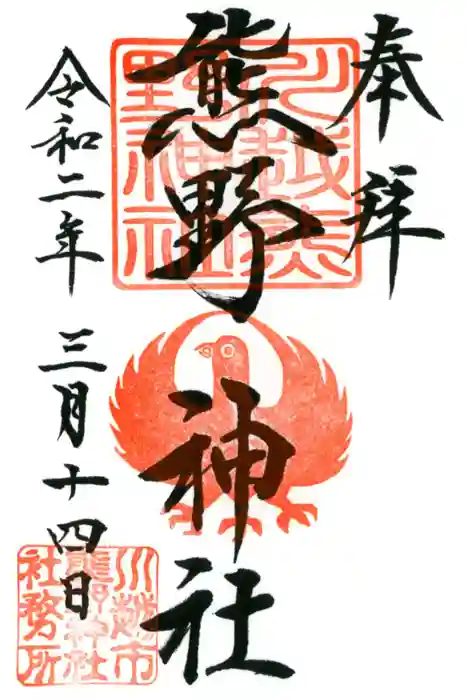 奉拝
川越熊野神社
熊野神社
令和二年 三月十四日
川越市
熊野神社
社務所